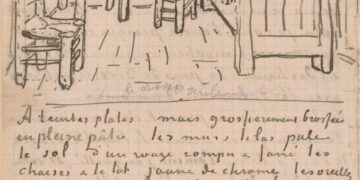 A teintes plates mais grossierement brossées
en pleine pâte les murs lilas pale
le sol d'un rouge rompu & fané les
chaises & le lit jaune de chrome les oreillers